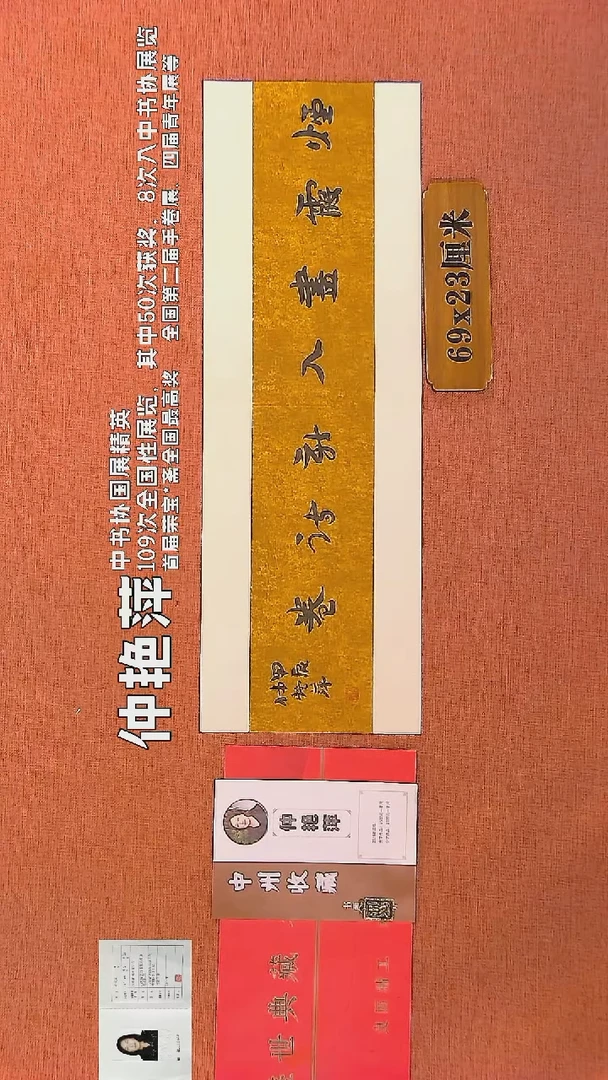 仲艳萍
中书协国展精英
109次全国性展览，其中50次获奖，8次入中书协展览
首届荣宝·斋全国最高奖 全国第二届手卷展、四届青年展等
煙霞畫入新诗卷
甲辰
仲艳萍
69x23厘米
仲艳萍
中州收藏
世典藏